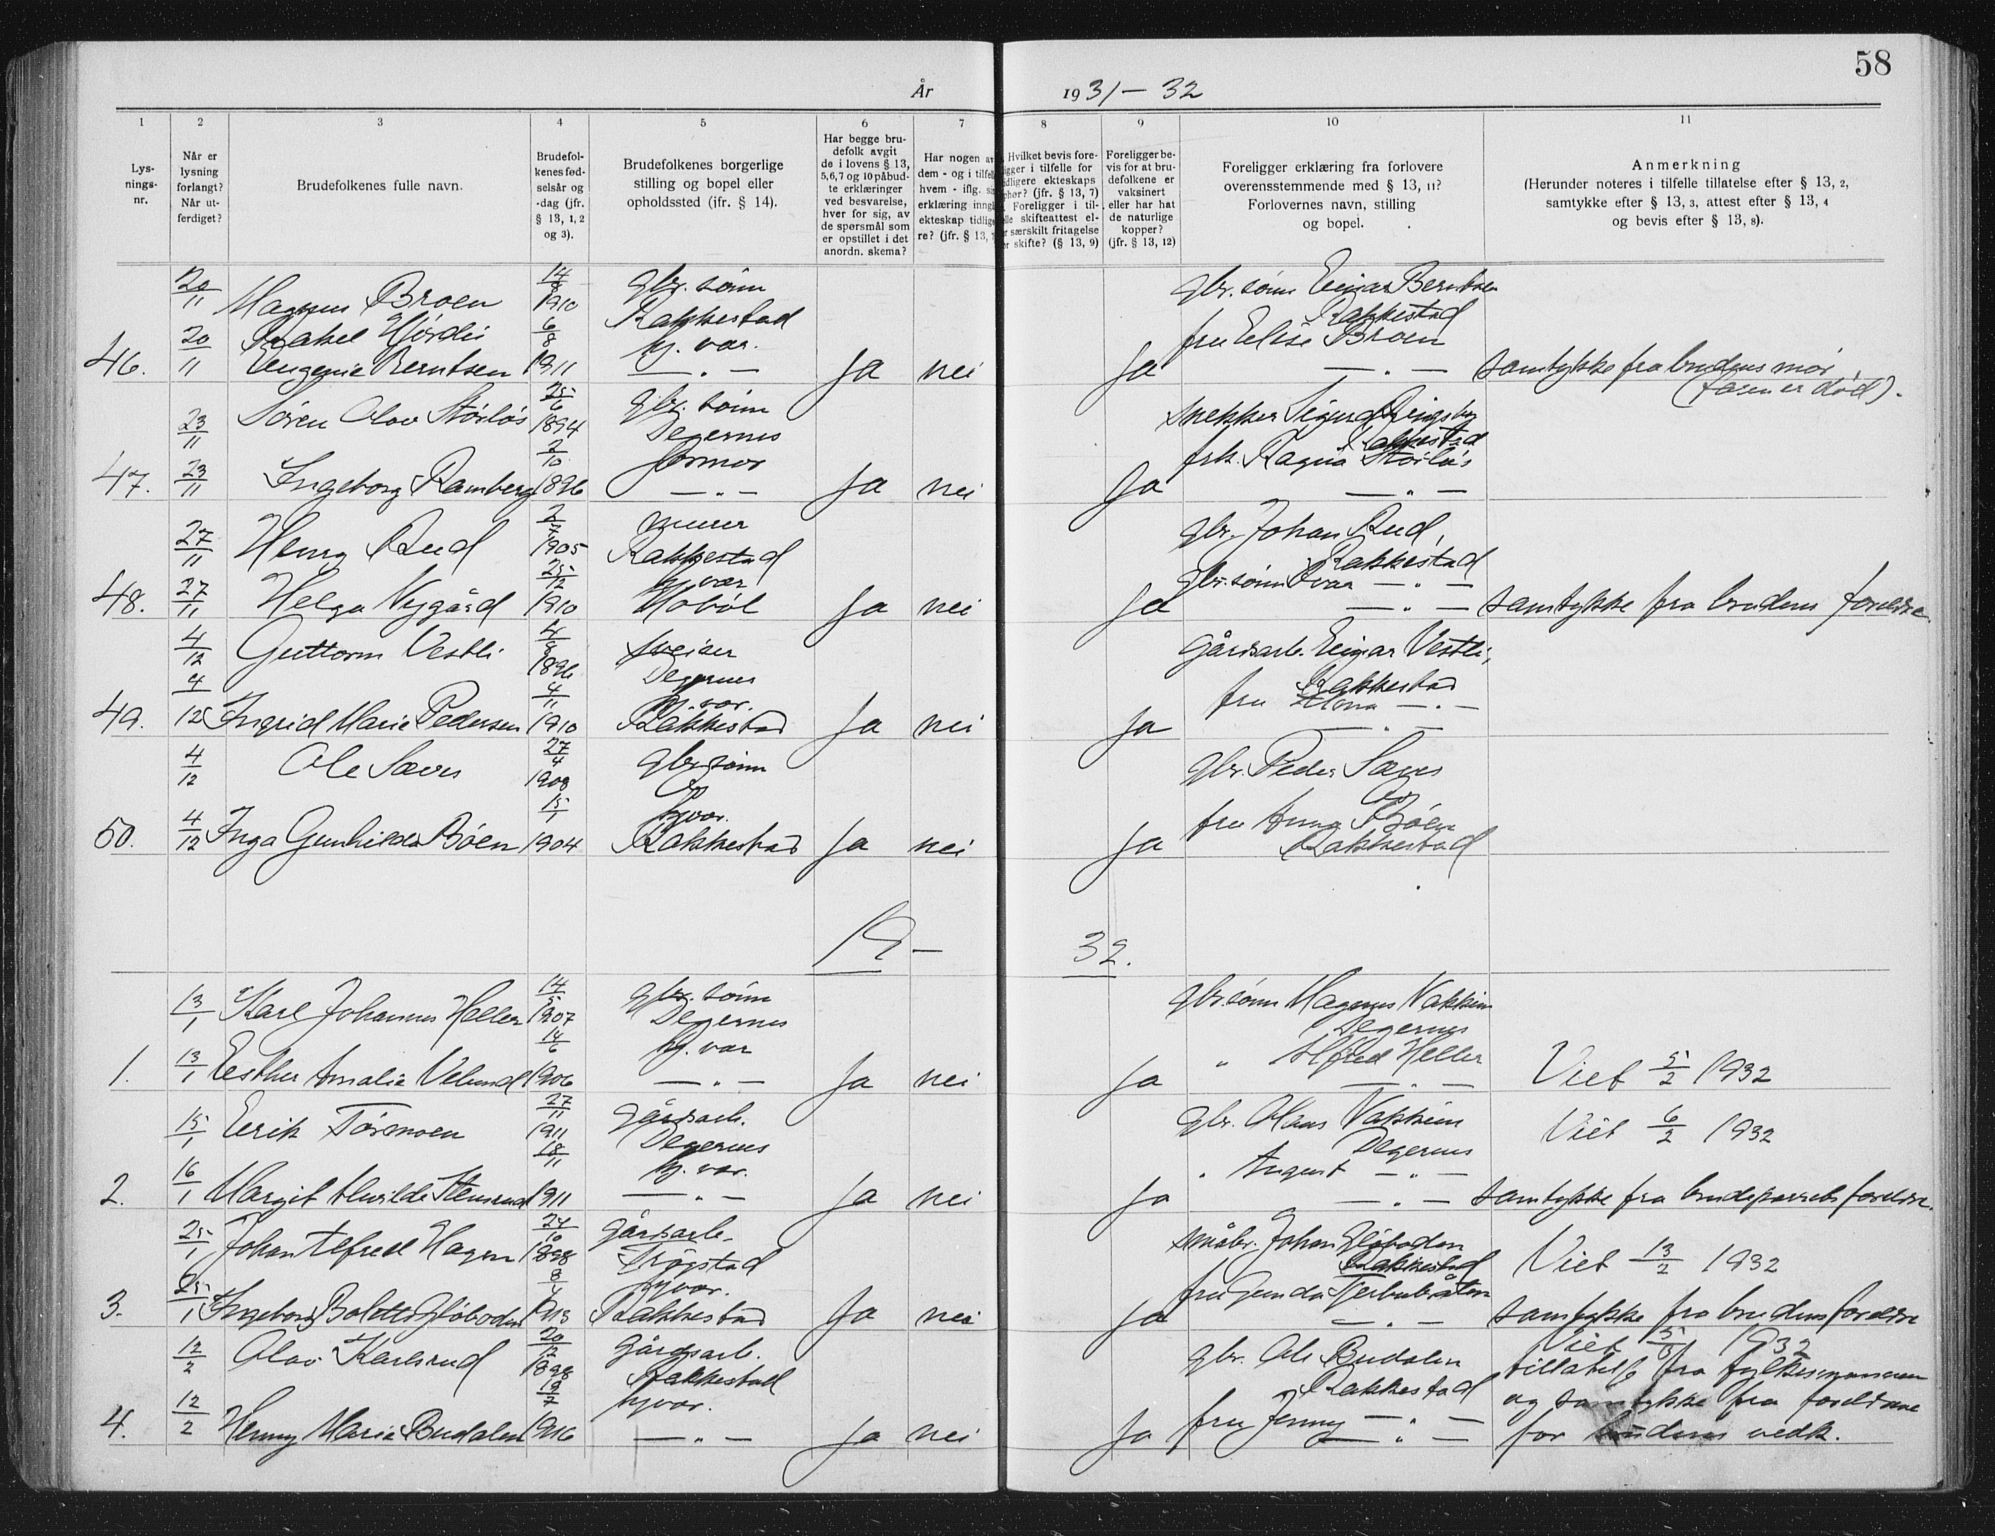 58
År 1931 – 32
1 2 3 4 5 6 7 8 9 10 11
Lysningsnr.
Når er lysning forlangt? Når utferdiget?
Brudefolkenes fulle navn.
Brudefolkenes fødselsår og -dag (jfr. § 13, 1, 2 og 3).
Brudefolkenes borgerlige stilling og bopel eller opholdssted (jfr. § 14).
Har begge brudefolk avgit de i lovens § 13, 5, 6, 7 og 10 påbudte erklæringer ved besvarelse, hver for sig, av de spørsmål som er opstillet i det anordn. skema?
Har nogen av dem - og i tilfelle hvem - iflg. erklæring ekteskap tidligere? (jfr. § 13,
Hvilket bevis foreligger i tilfelle for tidligere ekteskaps ophør? (jfr. § 13, 7) Foreligger i tilfelle skifteattest eller særskilt fritagelse for skifte? (§ 13, 9)
Foreligger bevis for at brudefolkene er vaksinert eller har hat de naturlige kopper? (jfr. § 13, 12)
Foreligger erklæring fra forlovere overensstemmende med § 13, 11? Forlovernes navn, stilling og bopel.
Anmerkning (Herunder noteres i tilfelle tillatelse efter § 13, 2, samtykke efter § 13, 3, attest efter § 13, 4 og bevis efter § 13, 8).
20/11 Magnus Broen 14/8 1910 gbr. sønn Rakkestad gbr. sønn Einar Berntsen Rakkestad
46. 20/11 Rakel Hjørdis Eugenie Berntsen 6/8 1911 hj. vær. — " — Ja nei Ja fru Elise Broen — " — samtykke fra brudens mor (faren er død).
23/11 Søren Olav Storløs 25/6 1894 gbr. sønn Degernes snekker Sigurd Ringsby Rakkestad
47. 23/11 Ingeborg Ramberg 2/10 1896 jormor — " — Ja nei Ja frk. Ragna Storløs — " —
27/11 Henry Rud 2/7 1905 murer Rakkestad gbr. Johan Rud, Rakkestad
48. 27/11 Helga Nygård 25/12 1910 hj vær Hobøl Ja nei Ja gbr. sønn Ivar — " — — " — samtykke fra brudens foreldre.
4/12 Guttorm Vestli 4/8 1896 sveiser Degernes gårdsarb. Einar Vestli, Rakkestad
49. 4/12 Ingrid Marie Pedersen 4/11 1910 hj. vær. Rakkestad Ja nei Ja fru — " — — " —
4/12 Ole Sæves 27/4 1908 gbr. sønn gbr. Peder Sæves
50. 4/12 Inga Gunhilda Bøen 15/1 1904 hjvær. Rakkestad Ja nei Ja fru Anna Bøen Rakkestad
19 — 32.
13/1 Karl Johannes Heller 14/5 1907 gbr. sønn Degernes gbr. sønn Magnus Nakkim Degernes
1. 13/1 Esther Amalie Velund 14/6 1906 hj. vær — " — Ja nei Ja " Alfred Heller — " — Viet 5/2 1932
15/1 Erik Tormoen 27/11 1911 gårdsarb. Degernes gbr. Olaus Nakkim Degernes Viet 6/2 1932
2. 16/1 Margit Alvilde Stensrud 18/11 1911 hj. vær. — " — Ja nei Ja " August — " — — " — samtykke fra brudeparrets foreldre.
25/1 Johan Alfred Hagen 24/10 1898 gårdsarb. Trøgstad småbr. Johan Gløboden Rakkestad Viet 13/2 1932
3. 25/1 Ingeborg Bolette Gløboden 8/1 1913 hjvær. Rakkestad Ja nei Ja fru Gunda — " — samtykke fra brudens foreldre
12/2 Olav Karlsrud 20/12 1898 gårdsarb. Rakkestad gbr. Ole Budalen Rakkestad Viet 5/6 1932 tillatelse fra fylkesmannen
4. 12/2 Henny Marie Budalen 19/7 1916 hjvær. — " — Ja nei Ja fru Jenny — " — — " — og samtykke fra foreldrene for brudens vedk.